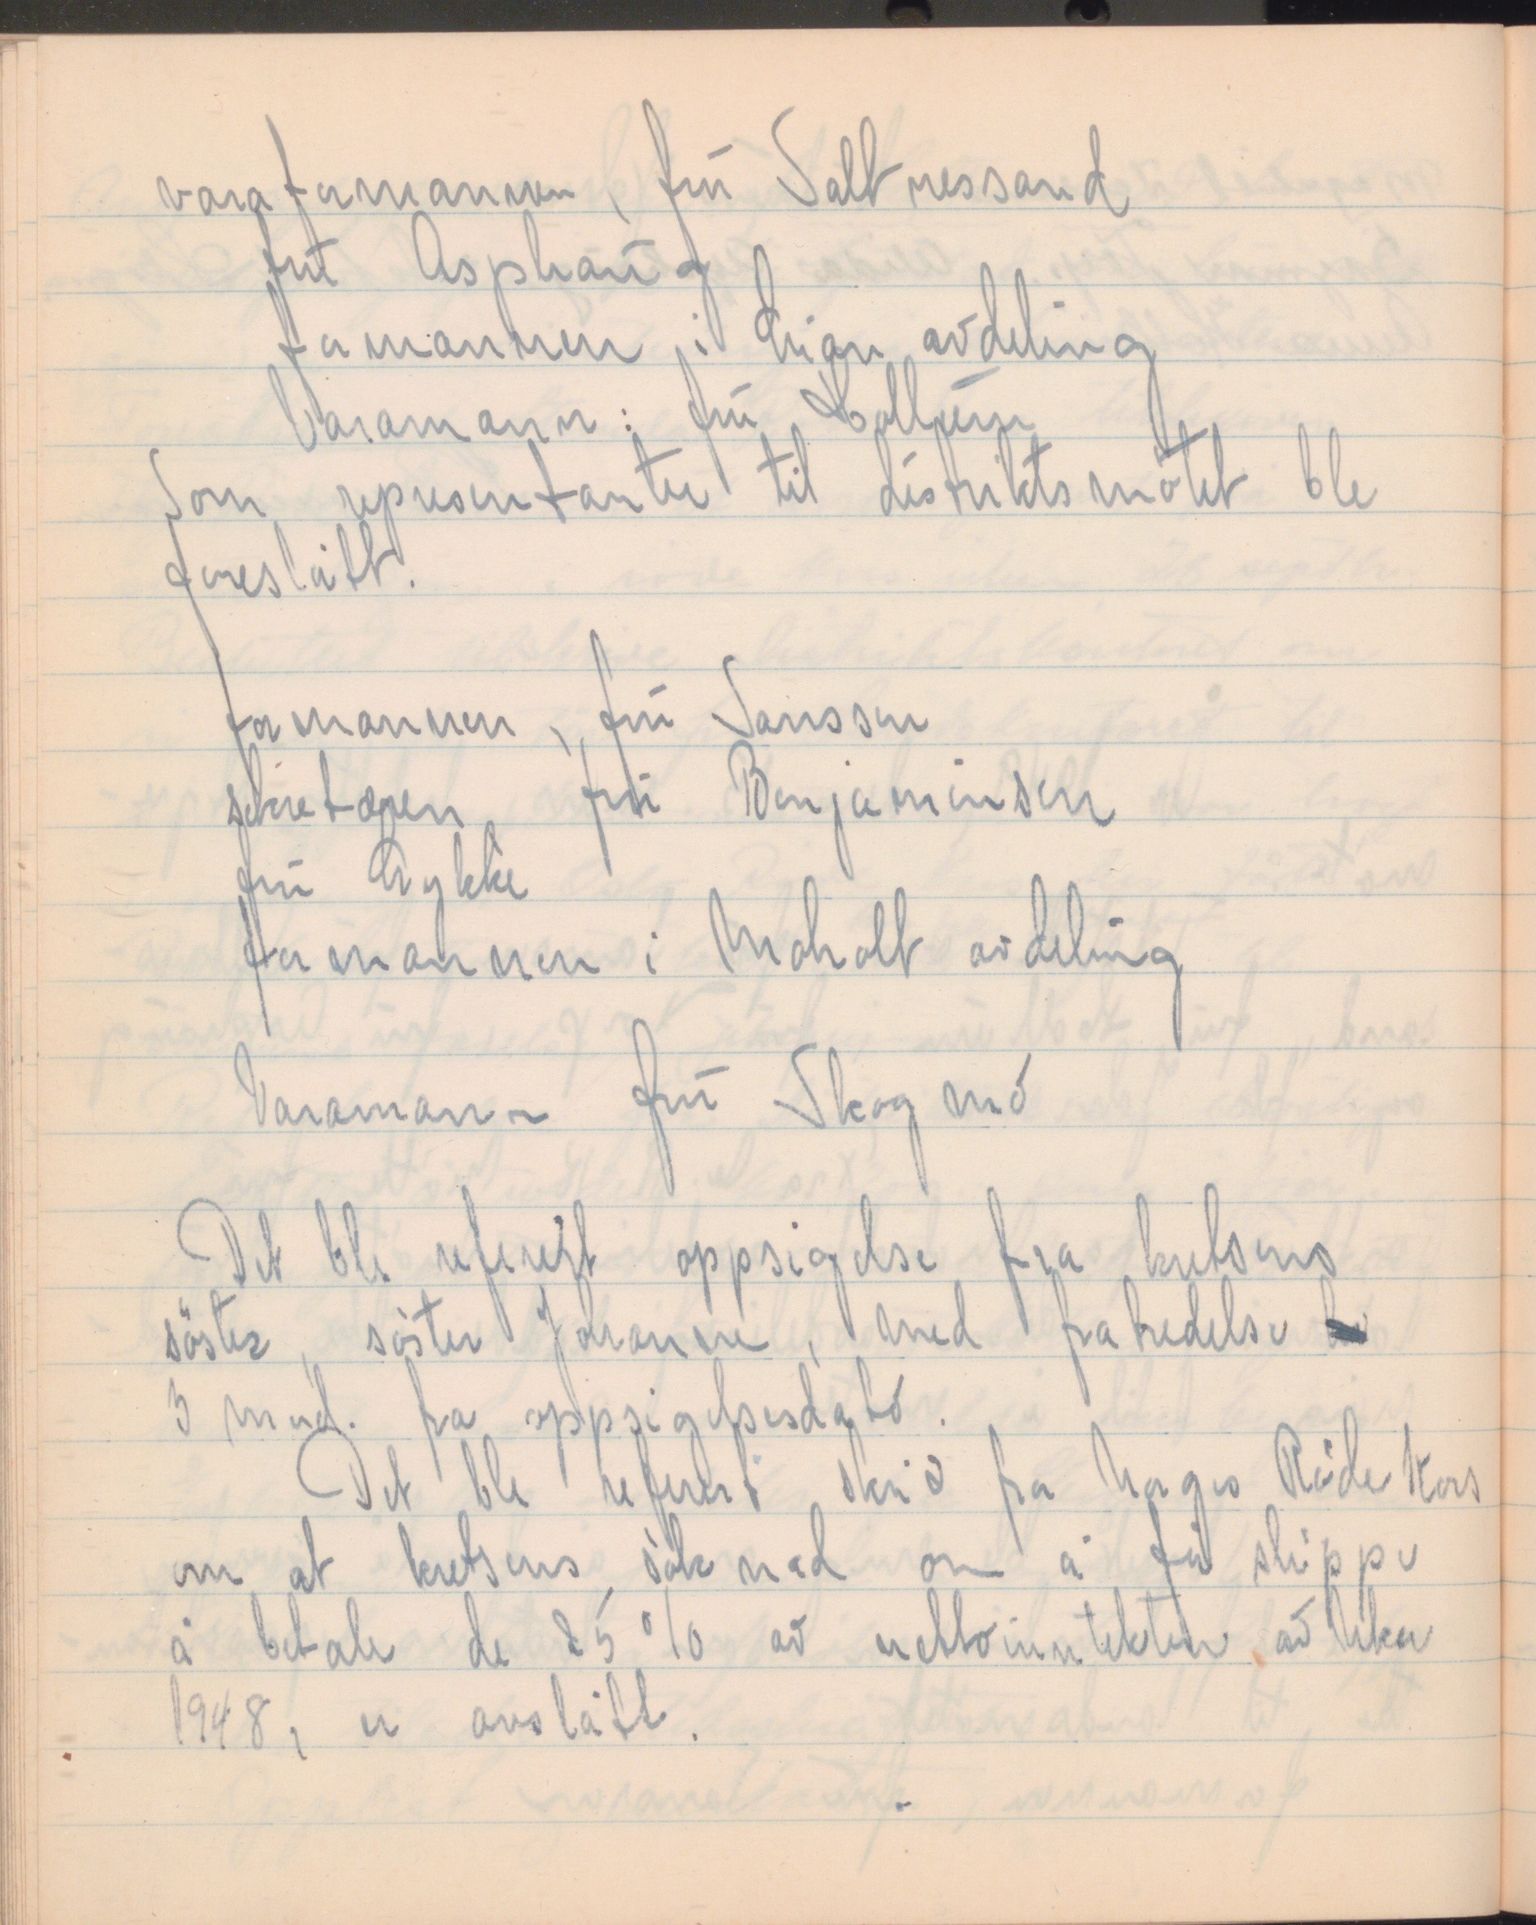 varaformannen, frü Saltnessand
frü Asphaüg
formannen i Lian avdeling
Varamann: frü Kollüm
Som representanter til distriktsmötet ble
foreslått.
formannen, frü Jansson
sekretæren, frü Benjaminsen
frü Rykke
formannen i Moholt avdeling
Varamann frü Skogmö
Det ble referert oppsigelse fra kretsens
söster, söster Johanne, med fratredelse
3 mnd. fra oppsigelsesdato.
Det ble referert skriv fra Norges Röde Kors
om at kretsens söknad om å få slippe
å betale de 25% av nettoinntekten av Uken
1948, er avslått.